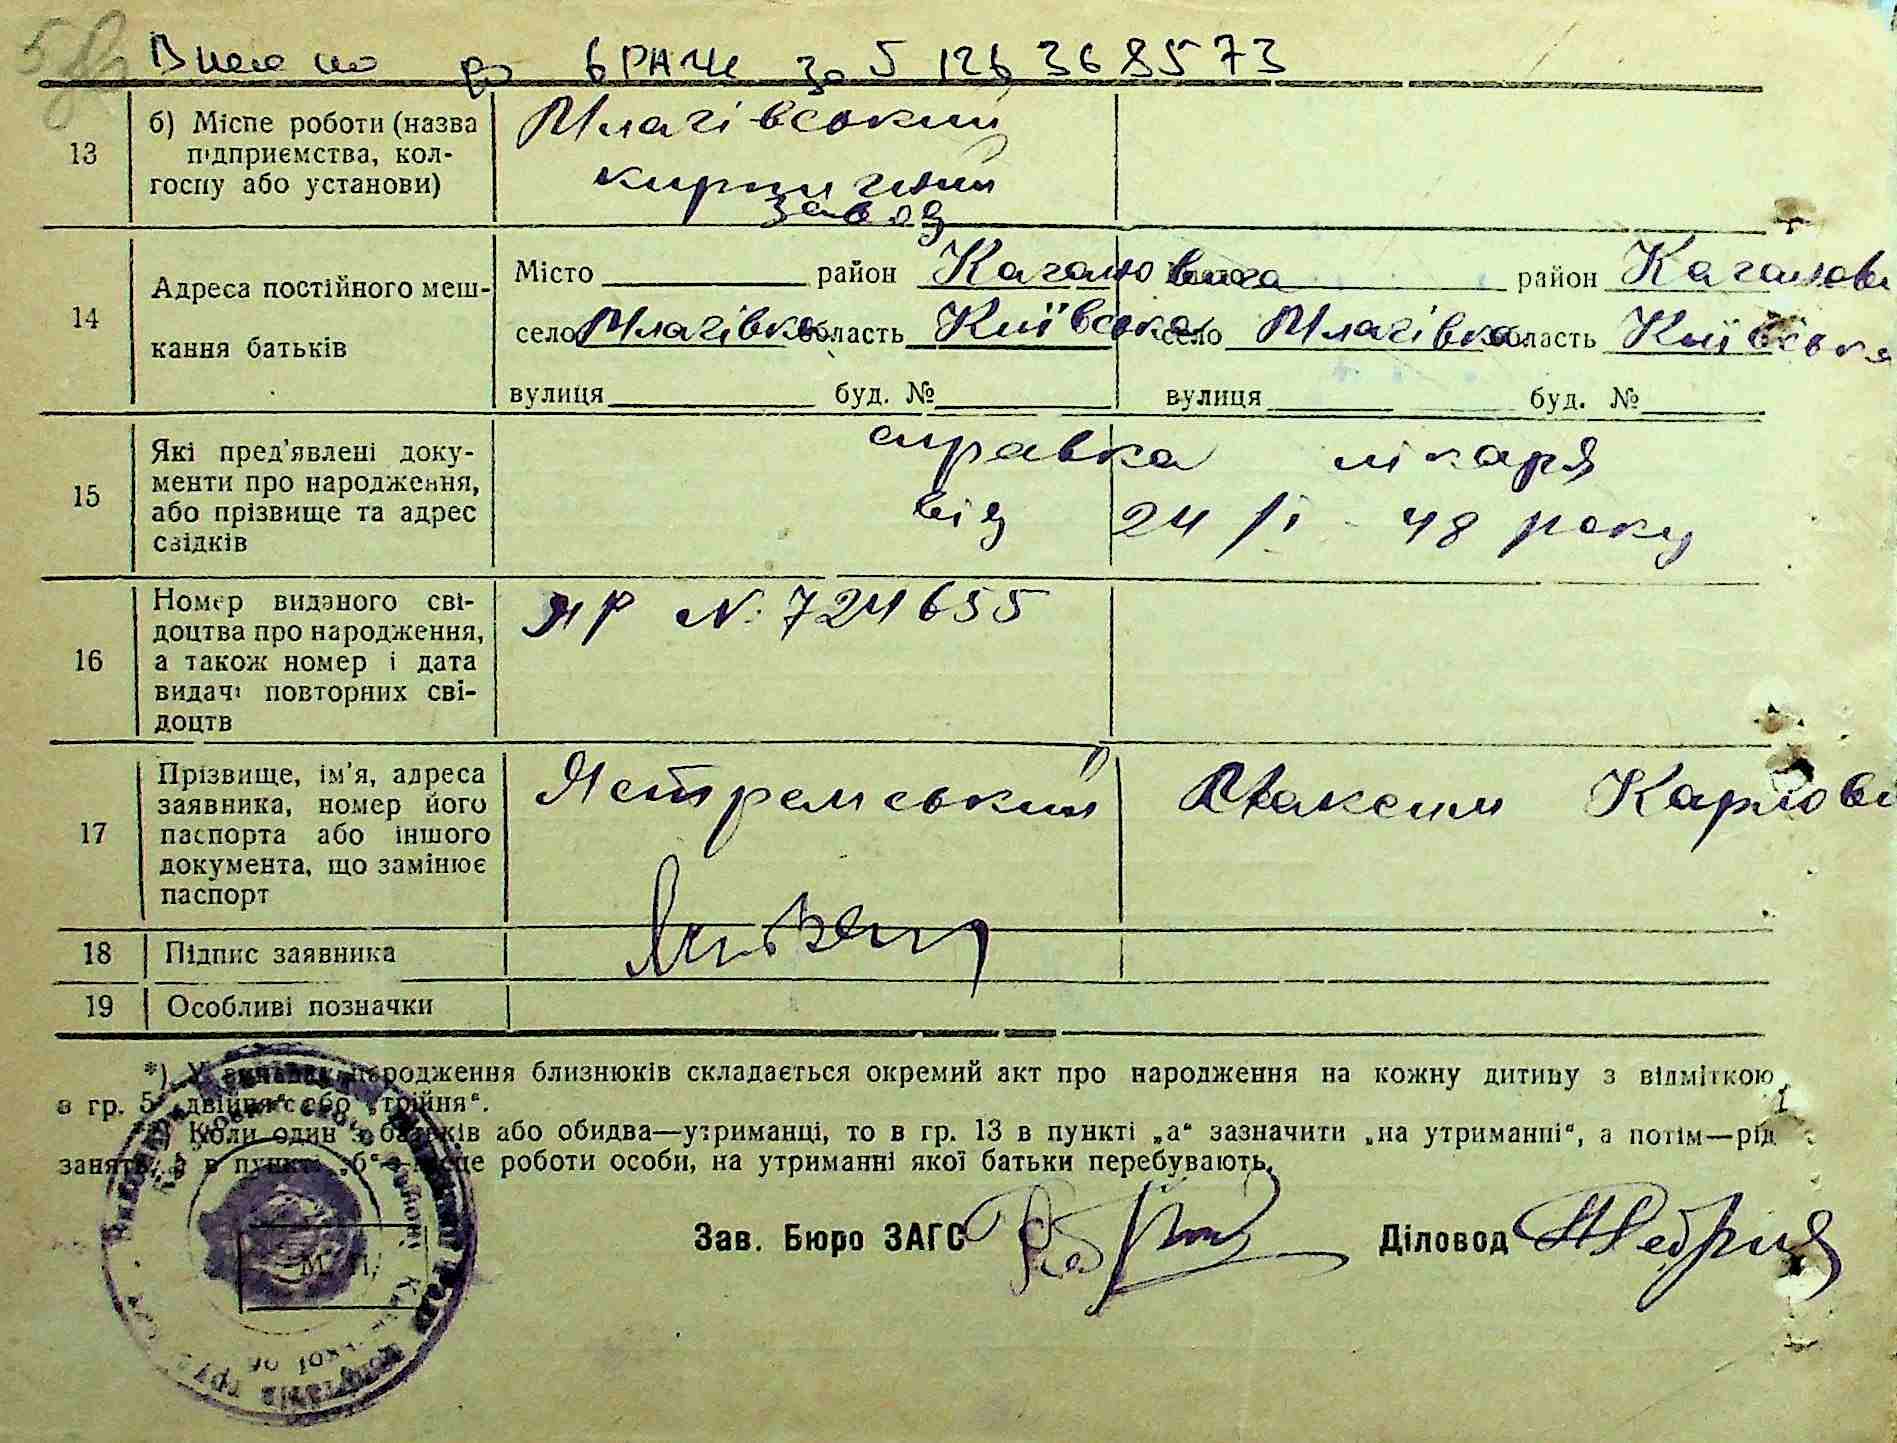 Внесено до ВРАЧЕ за 5 126 368573
13
б) Місце роботи (назва
підприємства, кол-
госпу або установи)
Млачівський
кирпичний
завод
14
Адреса постійного меш-
кання батьків
Місто район Кагановича район Каганови
село Млачівка область Київська село Млачівка область Київська
вулиця буд. № вулиця буд. №
15
Які пред'явлені доку-
менти про народження,
або прізвище та адрес
свідків
справка лікаря
від 24/I - 48 року
16
Номер виданого сві-
доцтва про народження,
а також номер і дата
видачі повторних сві-
доцтв
ЯР №: 724655
17
Прізвище, ім'я, адреса
заявника, номер його
паспорта або іншого
документа, що замінює
паспорт
Ястремський Максим Карлові
18 Підпис заявника
19 Особливі позначки
*) У випадку народження близнюків складається окремий акт про народження на кожну дитину з відміткою
в гр. 5 „двійня" або „трійня".
Коли один з батьків або обидва—утриманці, то в гр. 13 в пункті „а" зазначити „на утриманні", а потім—рід
занять, а в пункті „б"—місце роботи особи, на утриманні якої батьки перебувають.
Зав. Бюро ЗАГС Діловод
М. П.